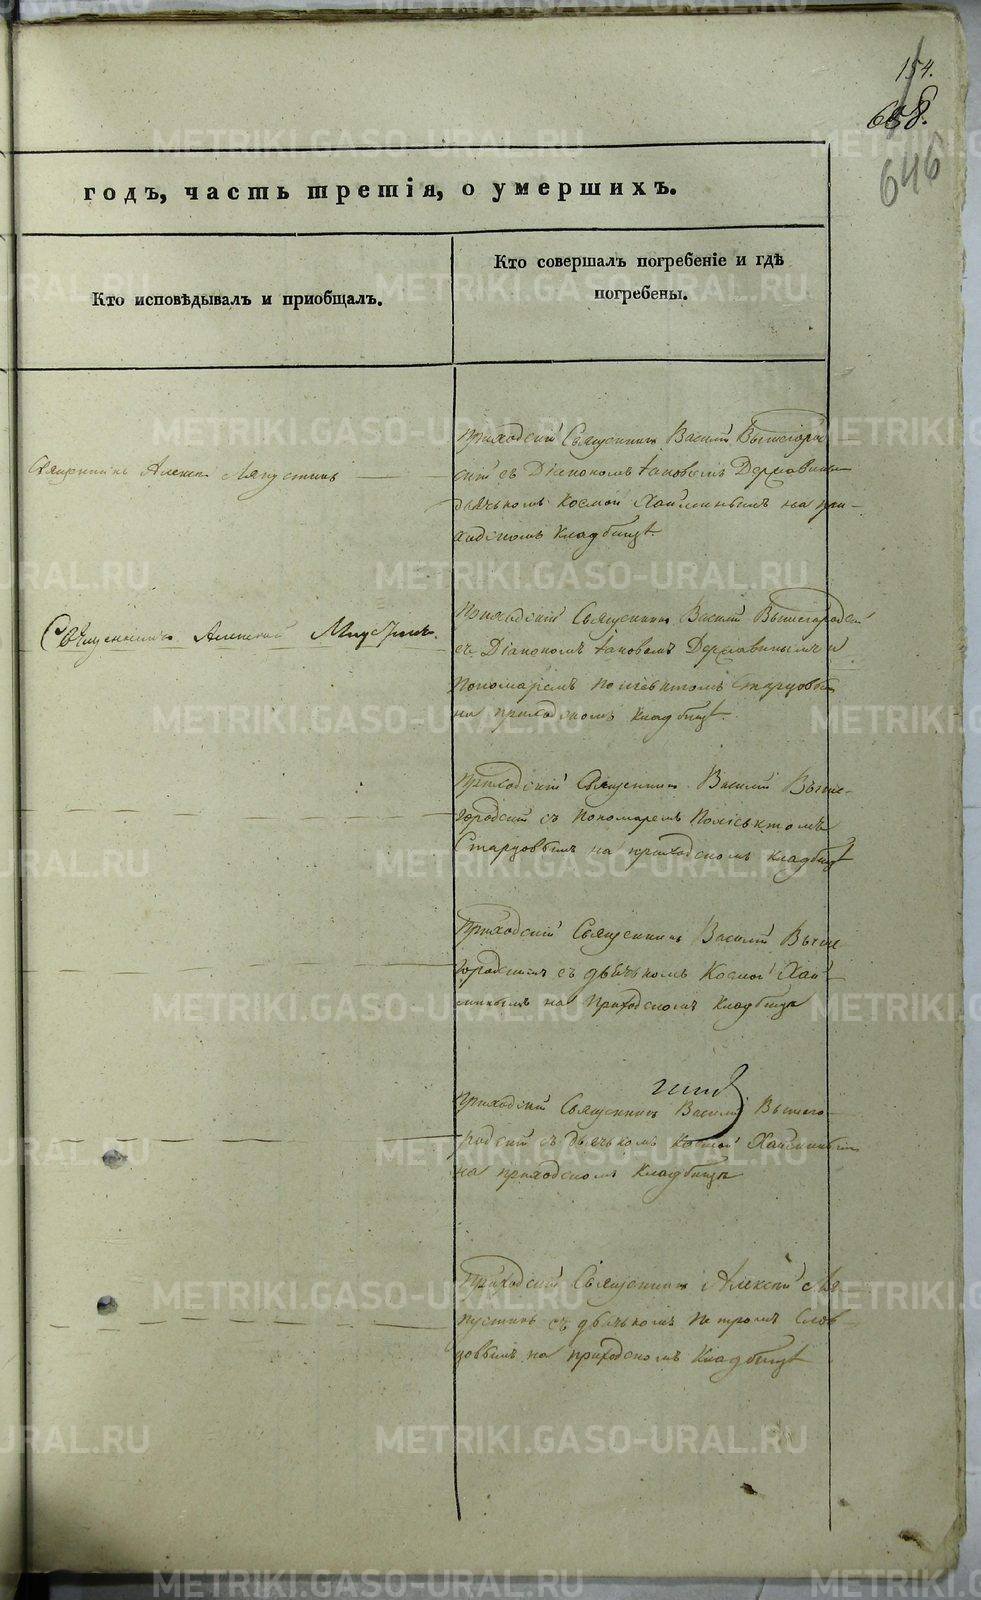 154.
658.
646
годъ, часть третія, о умершихъ.
Кто исповѣдывалъ и приобщалъ.
Кто совершалъ погребеніе и гдѣ
погребены.
Священникъ Алексѣй Ляпустинъ
Приходскій Священникъ Василій Вышегород-
скій съ Діакономъ Іаковомъ Державинымъ
дьячькомъ Космой на при-
ходскомъ кладбищѣ.
Священникъ Алексѣй
Приходскій Священникъ Василій Вышегородскій
съ Діакономъ Іаковомъ Державинымъ и
Пономаремъ Поліевктомъ Старцовымъ
на приходскомъ кладбищѣ.
Приходскій Священникъ Василій Выше-
городскій съ Пономаремъ Поліевктомъ
Старцовымъ на приходскомъ кладбищѣ
Приходскій Священникъ Василій Выше
городскій съ дьячькомъ Космой
на Приходскомъ кладбищѣ
Приходскій Священникъ Василій Вышего
родскій съ Дьячькомъ Космой
на приходскомъ Кладбищѣ
Приходскій Священникъ Алексій Ля
пустинъ съ дьячькомъ Петромъ Слов
цовымъ на приходскомъ Кладбищѣ
METRIKI.GASO-URAL.RU